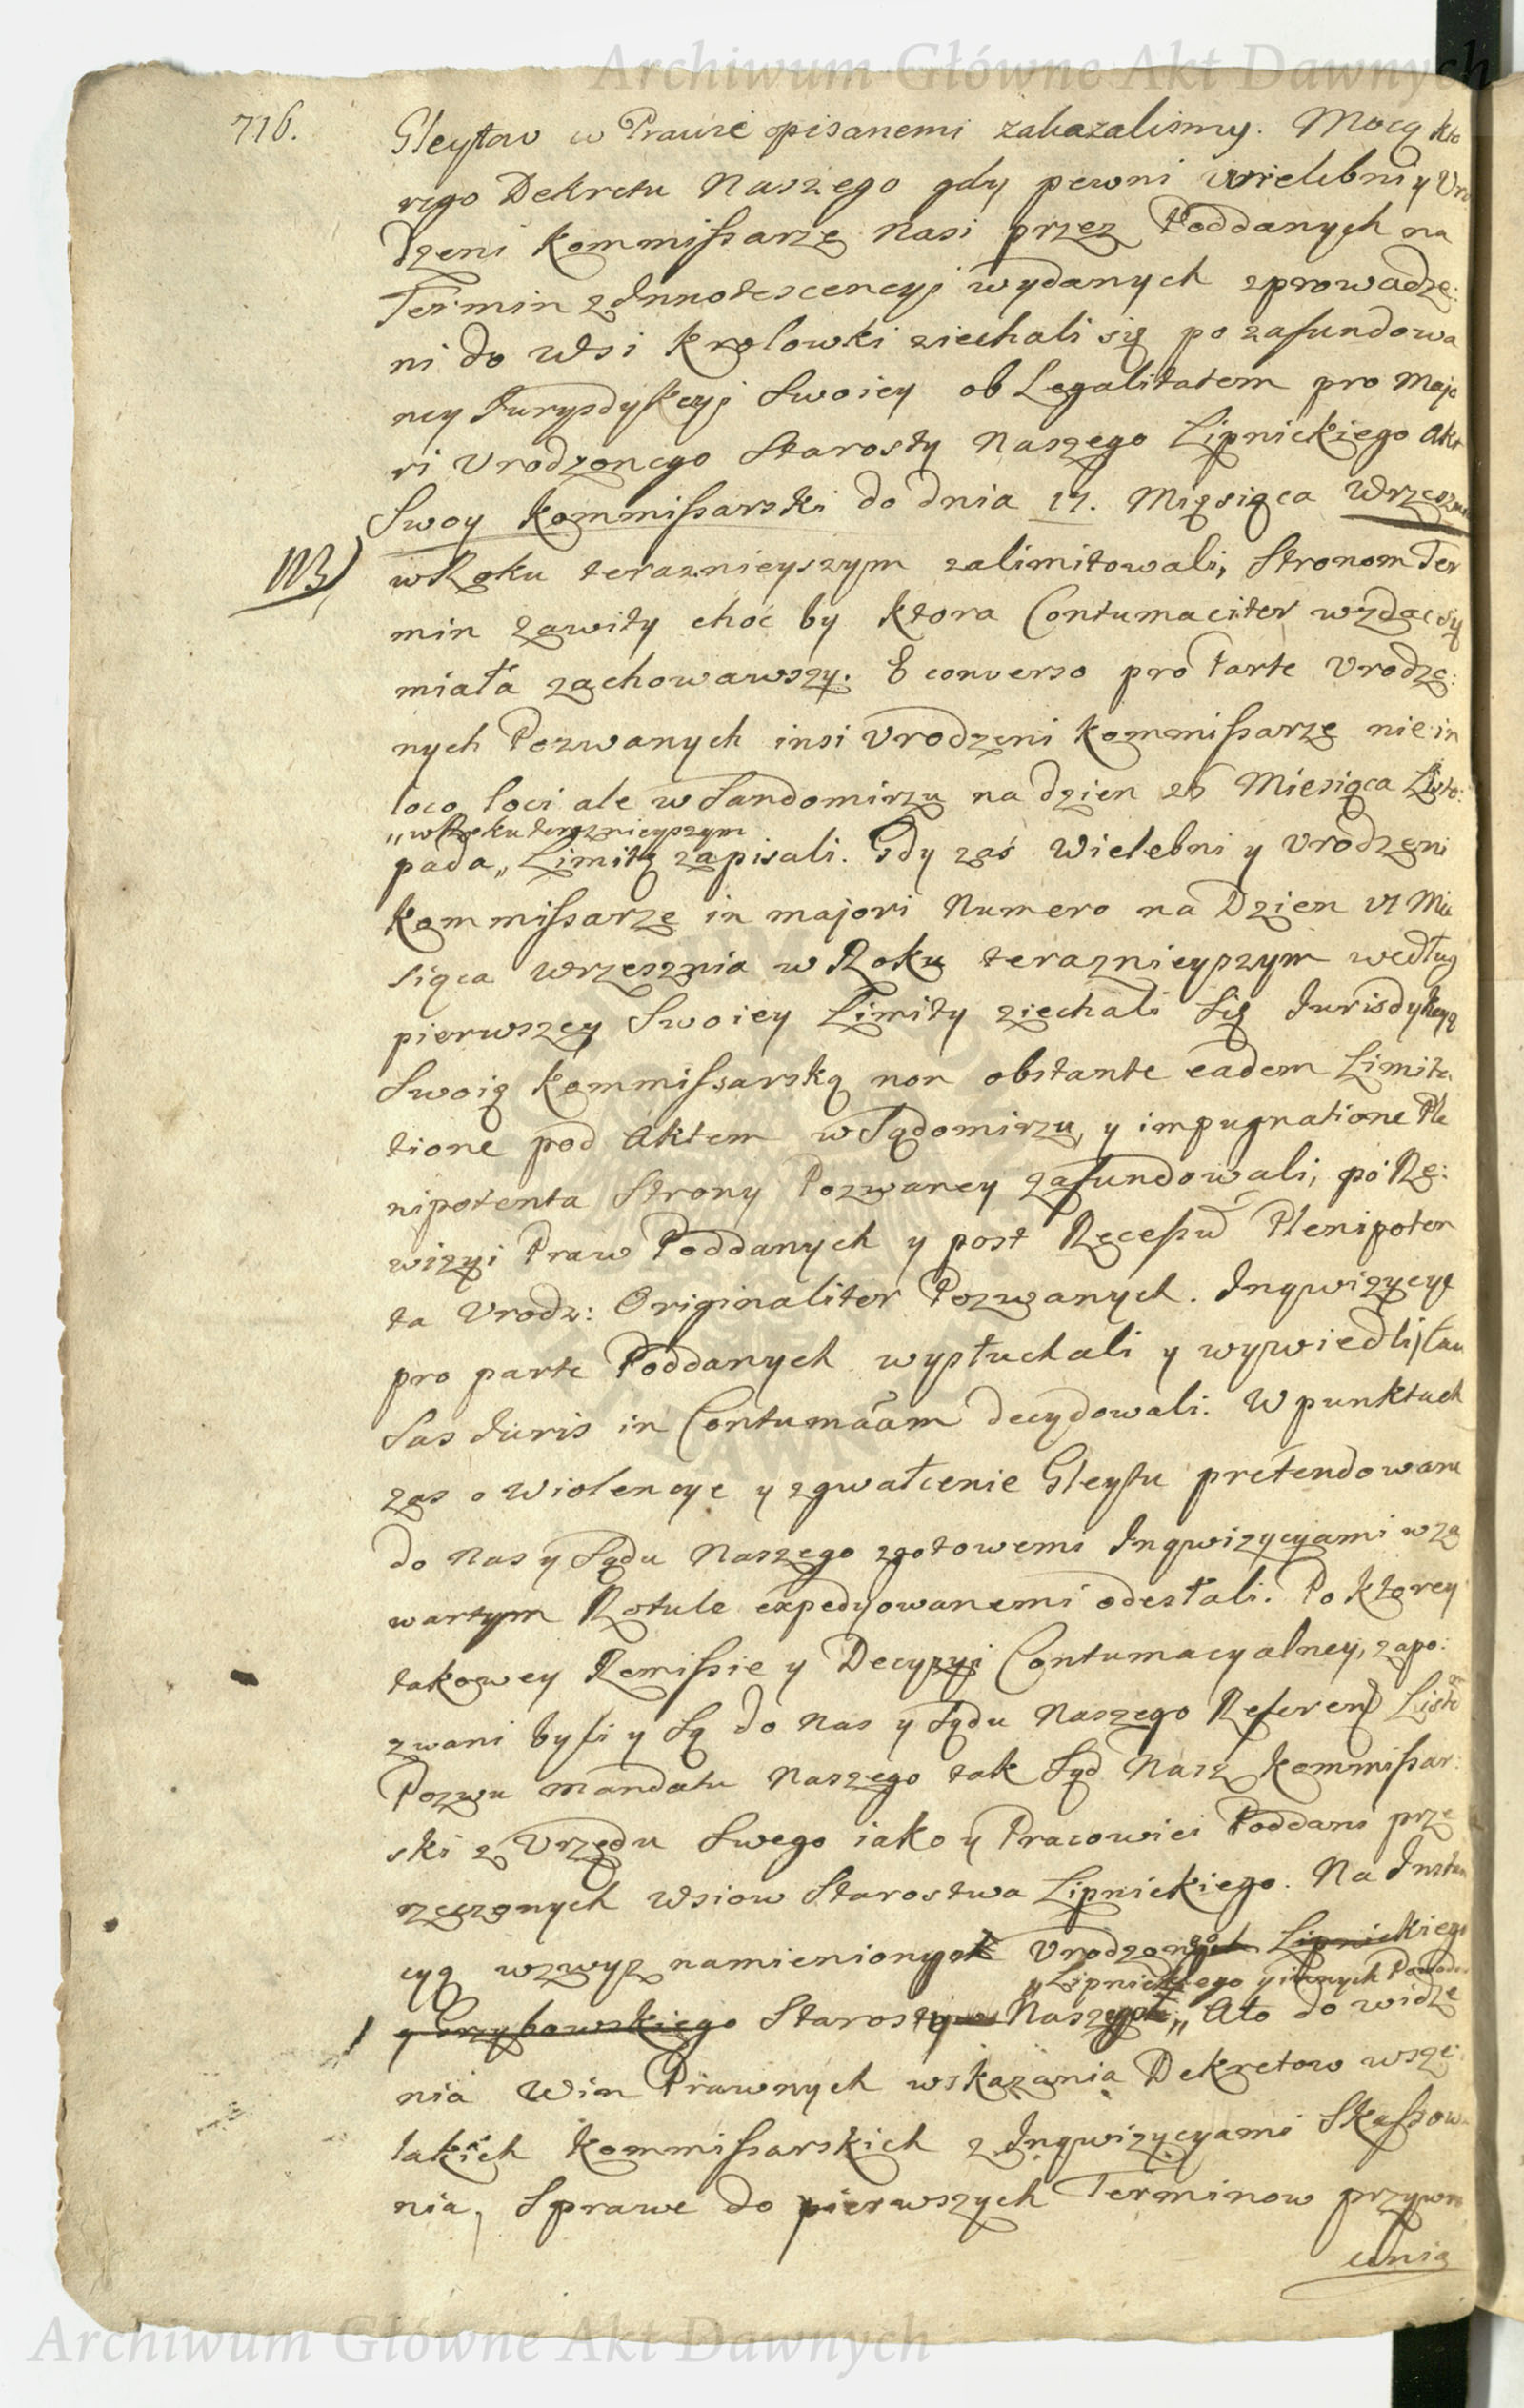 Archiwum Główne Akt Dawnych
716.
Gleytow w Prawie opisanemi zakazalismy. Mocą kto
rego Dekretu Naszego gdy pewni Wielebni y Uro
dzeni Kommissarze Nasi przez Poddanych na
Termin z Innotescencyi wydanych zprowadze:
ni do Wsi Krolowki ziechali się po zafundowa
ney Jurysdykcyi Swoiey ob Legalitatem pro Majo
ri Urodzonego Starosty Naszego Lipnickiego Akt
Swoy Kommissarski do dnia 17. Mięsiąca Wrzesznia
NB) w Roku teraznieyszym zalimitowali, Stronom Ter
min zawity choć by ktora Contumaciter wzdać się
miała zachowawszy. E converso pro Parte Urodzo:
nych Pozwanych insi Urodzeni Kommissarze nie in
loco loci ale w Sandomirzu na dzien 26 Miesiąca Listo:
„w Roku teraznieyszym
pada „ Limitę zapisali. Gdy zaś Wielebni y Urodzeni
Kommissarze in majori Numero na Dzien 17 Mie
siąca Wrzesznia w Roku teraznieyszym według
pierwszey Swoiey Limity ziechali Się Jurisdykcyą
Swoią Kommissarską non obstante eadem Limita
tione pod Aktem w Sądomirzu, y impugnatione Ple
nipotenta Strony Pozwaney zafundowali, po Re:
wizyi Praw Poddanych y post Recessu Plenipoten
ta Urodz: Originaliter Pozwanych. Inqwizycye
pro parte Poddanych wysłuchali y wywiedli, Cau
sas Juris in Contumaciam decydowali. W punktach
zas o Wiolencye y zgwałcenie Gleytu pretendowane
do Nas y Sądu Naszego z gotowemi Inqwizycyami w za
wartym Rotule expedyowanemi odesłali. Po ktorey
takowey Remissie y Decyzyi Contumacyalney, zapo:
zwani byli y Są do Nas y Sądu Naszego Referend Listem
Pozwu Mandatu Naszego tak Sąd Nasz Kommissar:
ski z Urzędu Swego iako y Pracowici Poddani prze
rzeczonych Wsiow Starostwa Lipnickiego. Na Instan
cyą wzwyz namienionych Urodzonych Lipnickiego
„Lipnickiego y innych Pozwanych
y Grzybowskiego Starosty Naszych „ Ato do widze
nia Win Prawnych wskazania Dekretow wsze
lakich Kommissarskich z Inqwizycyami Skassowa
nia, Sprawe do pierwszych Terminow przywro
cenia
Archiwum Główne Akt Dawnych